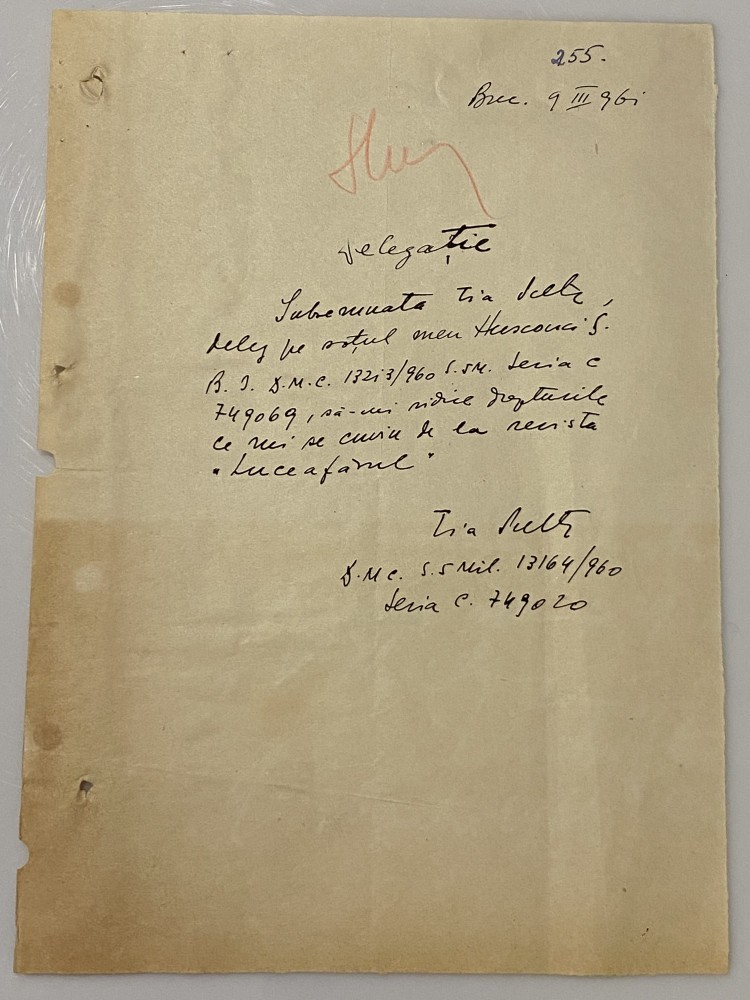 255.
Buc. 9 III 961
Delegație
Subsemnata Tia Peltz,
deleg pe soțul meu S.
B. I. D.M.C. 13213/960 S.5M. Seria C
749069, să-mi ridice drepturile
ce mi se cuvin de la revista
"Luceafărul"
Tia Peltz
D.M.C. S.5 Mil. 13164/960
Seria C. 749020